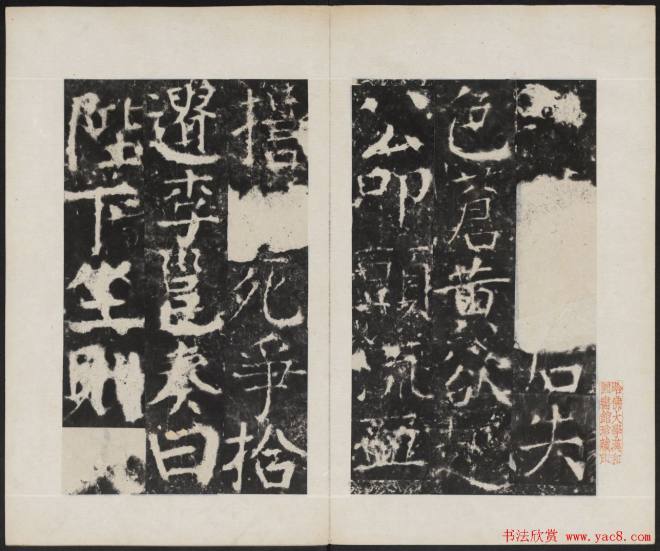 右失
色蒼黃欲
公叩頭流血
死爭拾
遺李邕奏曰
陛下坐則
哈佛大學漢和
圖書館珍藏印
书法欣赏 www.yac8.com